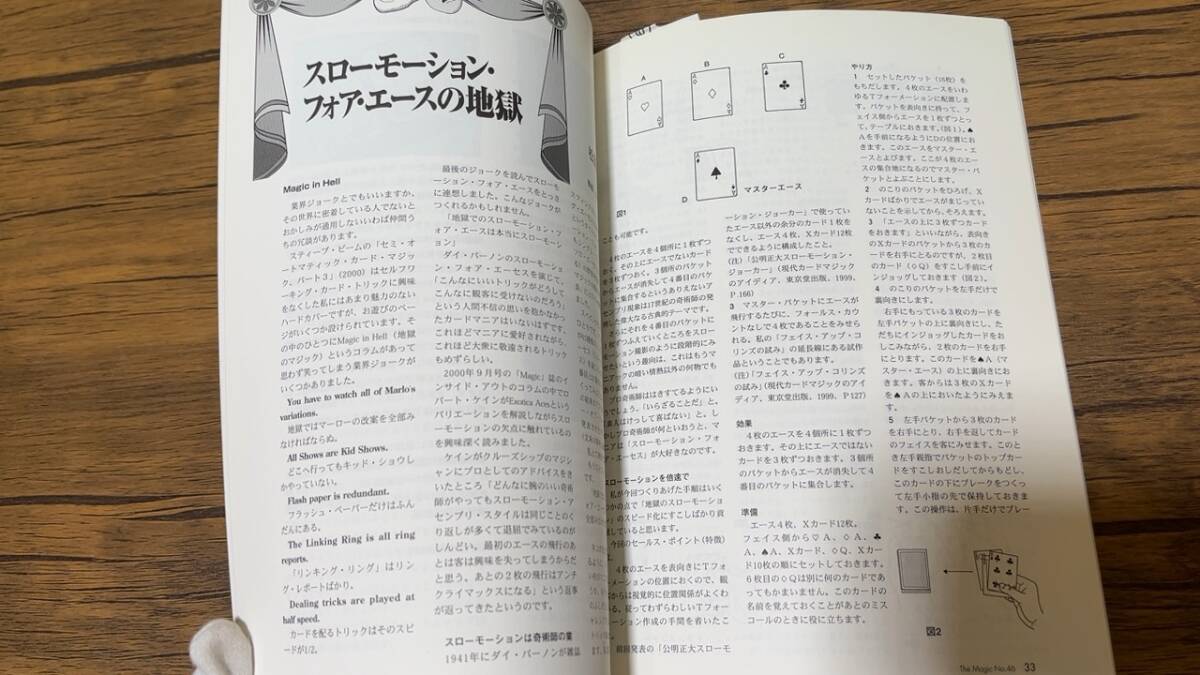 スローモーション・
フォア・エースの地獄
Magic in Hell
業界ジョークとでもいいますか、
その世界に密着している人でないと
おかしみが通用しないいわば仲間う
ちの冗談があります。
スティーブ・ビームの「セミ・オ
ートマティック・カード・マジッ
ク、パート3」(2000) はセルフワ
ーキング・カード・トリックに興味
をなくした私にはあまり魅力のない
ハードカバーですが、お遊びのペー
ジがいくつか設けられています。そ
の中のひとつにMagic in Hell (地獄
のマジック) というコラムがあって
思わず笑ってしまう業界ジョークが
いくつかありました。
You have to watch all of Marlo's
variations.
地獄ではマーローの改案を全部み
なければならぬ。
All Shows are Kid Shows.
どこへ行ってもキッド・ショウし
かやっていない。
Flash paper is redundant.
フラッシュ・ペーパーだけはふん
だんにある。
The Linking Ring is all ring
reports.
「リンキング・リング」はリン
グ・レポートばかり。
Dealing tricks are played at
half speed.
カードを配るトリックはそのスピ
ードが1/2。
最後のジョークを読んでスローモ
ーション・フォア・エースをとっさ
に連想しました。こんなジョークが
つくれるかもしれません。
「地獄でのスローモーション・フ
ォア・エースは本当にスローモーシ
ョン」
ダイ・バーノンのスローモーショ
ン・フォア・エーセスを演じて、
「こんなにいいトリックがどうして
こんなに観客に受けないのだろう」
という人間不信の思いを抱かなかっ
たカードマニアはいないはずです。
これほどマニアに愛好されながら、
これほど大衆に敬遠されるトリック
もめずらしい。
2000年9月号の「Magic」誌のイ
ンサイド・アウトのコラムの中でロ
バート・ケインがExotica Acesという
バリエーションを解説しながらスロ
ーモーションの欠点に触れているの
を興味深く読みました。
ケインがクルーズシップのマジシ
ャンにプロとしてのアドバイスをき
いたところ「どんなに腕のいい奇術
師がやってもスローモーション・ア
センブリ・スタイルは同じことのく
り返しが多くて退屈でみているのが
しんどい。最初のエースの飛行のあ
とは客は興味を失ってしまうからだ
と思う。あとの2枚の飛行はアンチ
クライマックスになる」という返事
が返ってきたというのです。
スローモーションは奇術師の業
1941年にダイ・バーノンが雑誌
A
B
C
D
マスターエース
図1
ことも可能です。
4枚のエースを4個所に1枚ずつ
く。その上にエースでないカード
枚ずつおく。3個所のパケットか
エースが消失して4番目のパケッ
に集合するというありえないア
ブリ現象は17世紀の奇術師の発
た偉大なる古典的テーマです。
さらにそれを4番目のパケットに
つふえていくところをスロー
ーション撮影のように段階的にみ
たいという趣向は、これはもうマ
ックの暗い情熱以外の何物でも
プロ奇術師ははきすてるようにい
でしょう。「いらざることだ」と。
人はけっして喜ばない」と。し
プロ奇術師が何といおうと、マ
は「スローモーション・フォ
ア・エーセス」が大好きなのです。
スローモーションを倍速で
私が今回つくりあげた手順はいく
かの点で「地獄のスローモーショ
のスピード化にすこしばかり貢
していると思います。
今回のセールス・ポイント(特徴)
4枚のエースを表向きにTフォ
ーメーションの位置におくので、観
らは視覚的に位置関係がよくわ
いる。従ってわずらわしいTフォー
ション作成の手間を省いたこ
前回発表の「公明正大スローモ
ーション・ジョーカー」で使ってい
たエース以外の余分のカード1枚を
なくし、エース4枚、Xカード12枚
でできるように構成したこと。
(注)「公明正大スローモーション・
ジョーカー」(現代カードマジック
のアイディア、東京堂出版、1999、
P.166)
3 マスター・パケットにエースが
飛行するたびに、フォールス・カウ
ントなしで4枚であることをみせら
れる。私の「フェイス・アップ・コ
リンズの試み」の延長線にある試作
品ということでもあります。
(注)「フェイス・アップ・コリンズ
の試み」(現代カードマジックのアイ
ディア、東京堂出版、1999、P127)
効果
4枚のエースを4個所に1枚ずつ
おきます。その上にエースではない
カードを3枚ずつおきます。3個所
のパケットからエースが消失して4
番目のパケットに集合します。
準備
エース4枚、Xカード12枚。
フェイス側から♡A、◇A、♣
A、♠A、Xカード、◇Q、Xカー
ド10枚の順にセットしておきます。
6枚目の◇Qは別に何のカードであ
ってもかまいません。このカードの
名前を覚えておくことがあとのミス
コールのときに役に立ちます。
やり方
1 セットしたパケット (16枚) を
もちだします。4枚のエースをいわ
ゆるTフォーメーションに配置しま
す。パケットを表向きに持って、フ
ェイス側からエースを1枚ずつとっ
て、テーブルにおきます。(図1)。♠
Aを手前になるようにDの位置にお
きます。このエースをマスター・エ
ースとよびます。ここが4枚のエー
スの集合地になるのでマスター・パ
ケットとよぶことにします。
2 のこりのパケットをひろげ、X
カードばかりでエースがまじってい
ないことを示してから、そろえます。
3 「エースの上に3枚ずつカード
をおきます」といいながら、表向き
のXカードのパケットから3枚のカ
ードを右手にとるのですが、2枚目
のカード (◇Q) をすこし手前にイン
ジョッグしておきます (図2)。
4 のこりのパケットを左手だけで
裏向きにします。
右手にもっている3枚のカードを
左手パケットの上に裏向きにし、た
だちにインジョッグしたカードをお
しこみながら、2枚のカードを右手
にとります。このカードを♠A (マ
スター・エース) の上に裏向きにお
きます。客からは3枚のXカードを
♠Aの上においたようにみえま
す。
5 左手パケットから3枚のカード
を右手にとり、右手を返してカード
のフェイスを客にみせます。このと
き左手親指でパケットのトップカー
ドをすこしおしだしてからもどし、
このカードの下にブレークをつくっ
て左手小指の先で保持しておきま
す。この操作は、片手だけでブレー
図2
The Magic No.46 33